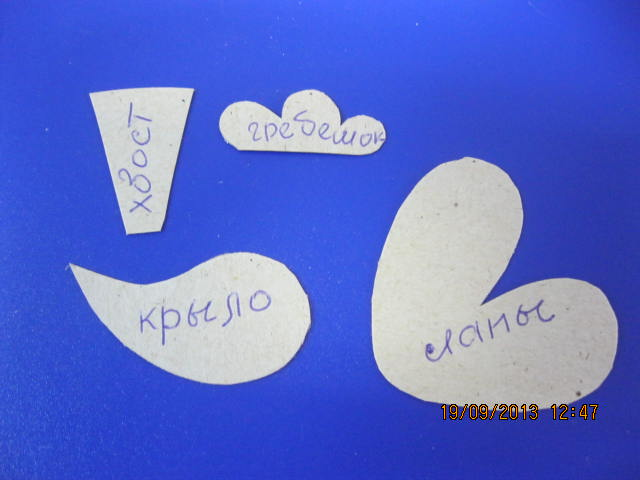 хвост
гребешок
крыло
лапы
19/09/2013 12:47